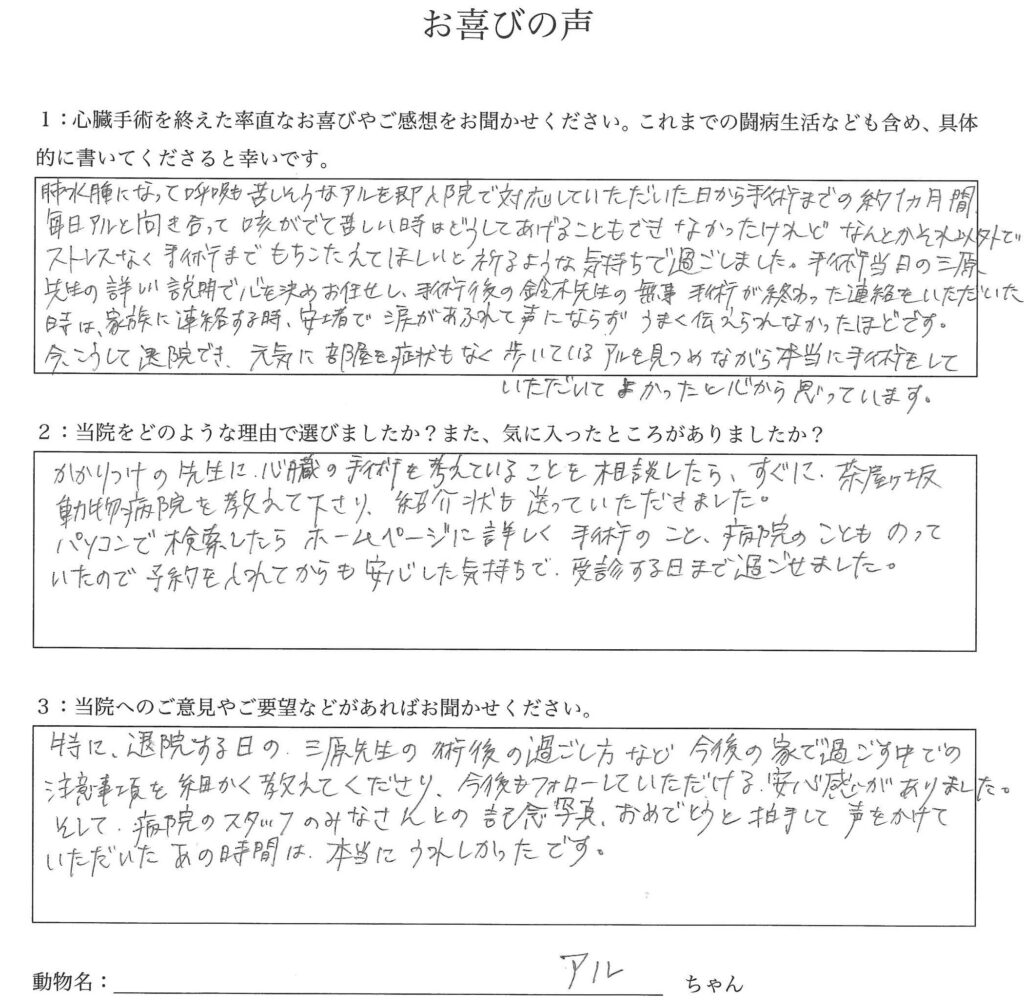 お喜びの声
1：心臓手術を終えた率直なお喜びやご感想をお聞かせください。これまでの闘病生活なども含め、具体
的に書いてくださると幸いです。
肺水腫になって呼吸も苦しそうなアルを即入院で対応していただいた日から手術までの約1カ月間、
毎日アルと向き合って咳がでて苦しい時はどうしてあげることもできなかったけれど なんとかそれ以外で
ストレスなく手術までもちこたえてほしいと祈るような気持ちで過ごしました。手術当日の三原
先生の詳しい説明で心を決めお任せし、手術後の鈴木先生の無事手術が終わった連絡をいただいた
時は、家族に連絡する時、安堵で涙があふれて声にならず うまく伝えられなかったほどです。
今、こうして退院でき、元気に部屋を症状もなく歩いているアルを見つめながら本当に手術をして
いただいてよかったと心から思っています。
2：当院をどのような理由で選びましたか？また、気に入ったところがありましたか？
かかりつけの先生に、心臓の手術を考えていることを相談したら、すぐに、茶屋ヶ坂
動物病院を教えて下さり、紹介状も送っていただきました。
パソコンで検索したら ホームページに詳しく 手術のこと、病院のことものって
いたので予約を入れてからも安心した気持ちで、受診する日まで過ごせました。
3：当院へのご意見やご要望などがあればお聞かせください。
特に、退院する日の、三原先生の術後の過ごし方など 今後の家で過ごす中での
注意事項を細かく教えてくださり、今後もフォローしていただける安心感がありました。
そして、病院のスタッフのみなさんとの記念写真、おめでとうと拍手して声をかけて
いただいたあの時間は、本当にうれしかったです。
動物名： アル ちゃん